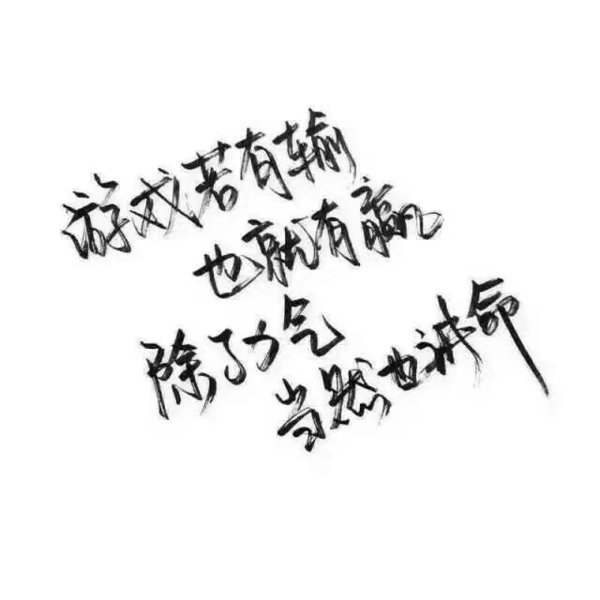 游戏若有输
也就有赢
除了勹气
当然也诚命